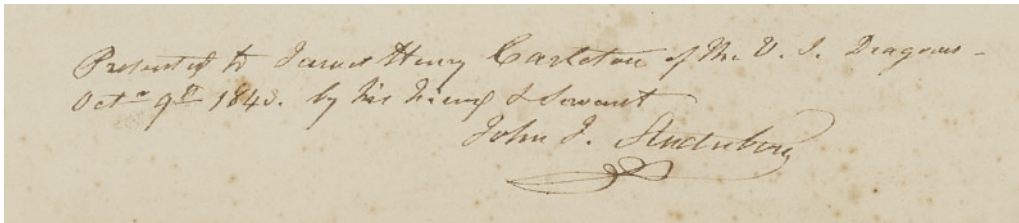 Presented to James Henry Carleton of the U. S. Dragoons -
Octr 9th 1843. by his friend & Servant
John J.